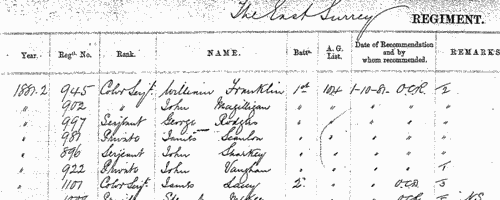 The East Surrey REGIMENT.
Year. Regtl. No. Rank. NAME. Batn. A. G. List. Date of Recommendation and by whom recommended. REMARKS
1881-2 945 Color Serjt. William Franklin 1st 104 1-10-81 O.C.R. 2
" 902 " John Magilligan " " " " "
" 997 Serjeant George Rodgers " " " "
" 987 Private James Scanlon " " " "
" 896 Serjeant John Sharkey " " " "
" 922 Private John Vaughan " " " " 1
" 1101 Color Serjt. James Lacey 2 " " O.C.R. 3